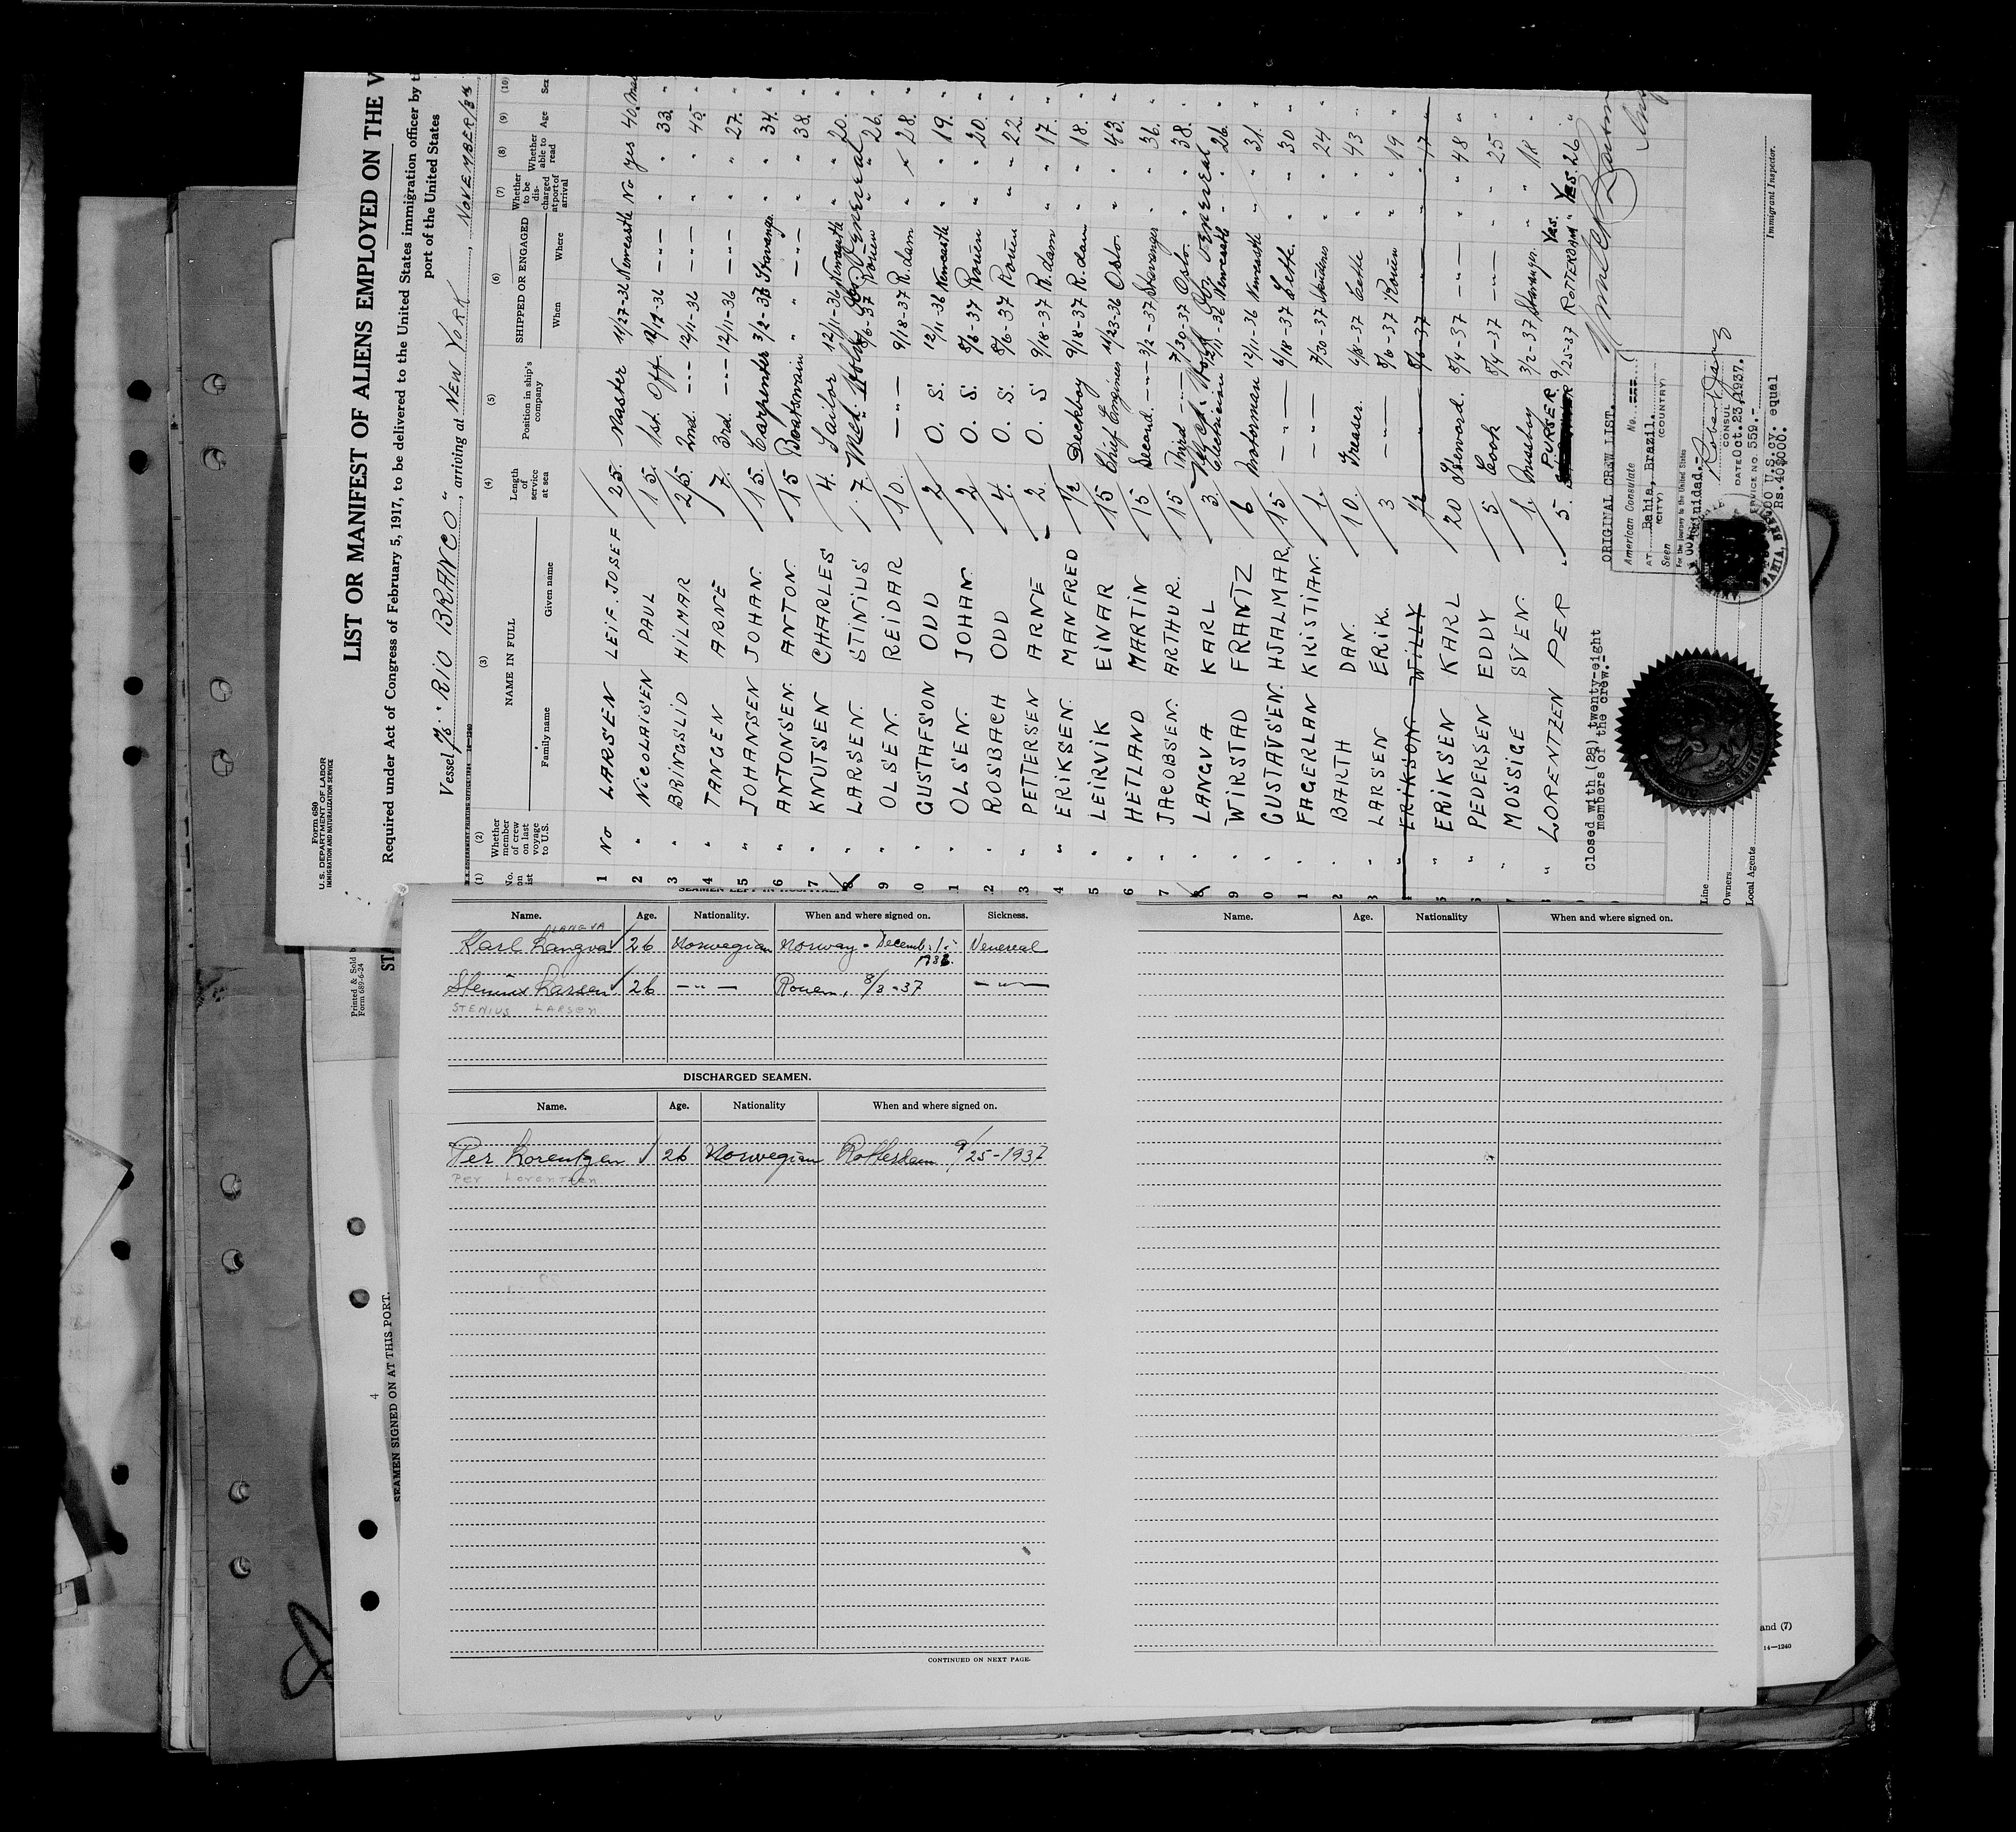 Form 680
U. S. DEPARTMENT OF LABOR
IMMIGRATION AND NATURALIZATION SERVICE
LIST OR MANIFEST OF ALIENS EMPLOYED ON THE V
Required under Act of Congress of February 5, 1917, to be delivered to the United States immigration officer by t
port of the United States
Vessel "RIO BRANCO", arriving at NEW YORK, NOVEMBER/
(1) (2) (3) (4) (5) (6) (7) (8) (9) (10)
No. on list Whether member of crew on last voyage to U.S. NAME IN FULL Family name Given name Length of service at sea Position in ship's company SHIPPED OR ENGAGED When Where Whether to be discharged at port of arrival Whether able to read Age Sex
1 No LARSEN LEIF. JOSEF 25. Master 11/27-36 Newcastle No yes 40.
2 " NICOLAISEN PAUL 15. 1st. Off. 12/12-36 -"- " " 33. "
3 " BRINGSLID HILMAR 25. 2nd. -"- 12/11-36 -"- " " 45. "
4 " TANGEN ARNE 7. 3rd. -"- 12/11-36 -"- " " 27. "
5 " JOHANSEN JOHAN. 15 Carpenter 3/2-37 Stavanger " " 34. "
6 " ANTONSEN. ANTON. 15 Boatswain " -"- " " 38. "
7 " KNUTSEN CHARLES 4. Sailor 12/11-36 Newcastle " " 20. "
8 " LARSEN. STINIUS 7. 8/6-37 Rouen " " 26. "
9 " OLSEN. REIDAR 10. -"- 9/18-37 R.dam " " 28. "
0 " GUSTAFSON ODD 2 O. S. 12/11-36 Newcastle " " 19. "
1 " OLSEN. JOHAN. 2 O. S. 8/6-37 Rouen " " 20. "
2 " ROSBACH ODD 4. O. S. 8/6-37 Rouen " " 22. "
3 " PETERSEN ARNE 2. O. S 9/18-37 R.dam " " 17. "
4 " ERIKSEN. MANFRED 1/2 Deckboy 9/18-37 R.dam " " 18. "
5 " LEIRVIK EINAR 15 Chief Engineer 11/23-36 Oslo. " " 43. "
6 " HETLAND MARTIN 15 Second. -"- 3/2-37 Stavanger " " 36. "
7 " JACOBSEN. ARTHUR. 15 Third -"- 7/30-37 Oslo. " " 38. "
8 " LANGVA KARL 3. Electrician 12/11-36 Newcastle " " 26. "
9 " WIRSTAD FRANTZ 6 Motorman 12/11-36 Newcastle " " 31. "
0 " GUSTAVSEN. HJALMAR. 15 -"- 6/18-37 Cette. " " 30 "
1 " FAGERLAN KRISTIAN. 1. -"- 7/30-37 " " 24 "
2 " BARTH DAN. 10. Greaser. 6/18-37 Cette " " 43 "
3 " LARSEN ERIK. 3 -"- 8/6-37 Rouen " " 19 "
" ERIKSON WILLY 1/2 " 8/6-37 " 17 "
" ERIKSEN KARL 20 Steward. 8/4-37 -"- " " 48 "
" PEDERSEN EDDY 5 Cook 8/4-37 -"- " " 25 "
" MOSSIGE SVEN. 1. Messboy 3/2-37 Stavanger. " " 18 "
" LORENTZEN PER 5. PURSER 9/25-37 ROTTERDAM Yes. Yes 26 "
Closed with (28) twenty-eight
members of the crew.-
ORIGINAL CREW LIST.
American Consulate No.
AT Bahia, Brazil.
(CITY) (COUNTRY)
Seen
For the journey to the United States
Trinidad.-
CONSUL
DATE Oct. 23, 1937.
SERVICE NO. 559.-
U.S.cy. equal
Rs.40$000.
Line
Owners
Local Agents
Immigrant Inspector.
Name. Age. Nationality. When and where signed on. Sickness.
LANGVA
Karl Langva 26 Norwegian Norway - Decemb. 1.- 1936. Venereal
Stenius Larsen 26 -"- Rouen, 8/3-37 -"-
STENIUS LARSEN
DISCHARGED SEAMEN.
Name. Age. Nationality When and where signed on.
Per Lorentzen 26 Norwegian Rotterdam 9/25-1937
Per Lorentzen
CONTINUED ON NEXT PAGE.
Name. Age. Nationality When and where signed on.
Printed & Sold
Form 689-6-24
4
SEAMEN SIGNED ON AT THIS PORT.
and (7)
14—1240